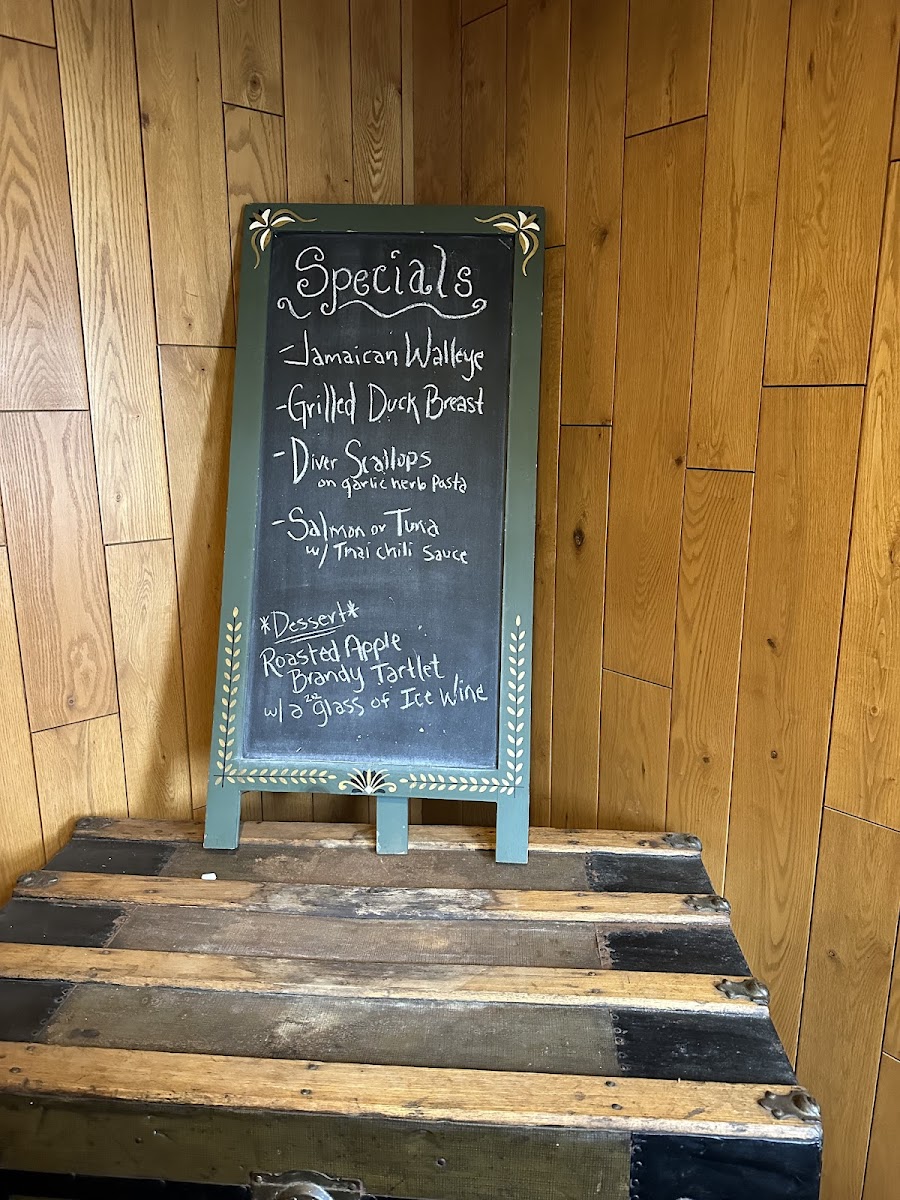 Specials
-Jamaican Walleye
-Grilled Duck Breast
-Diver Scallops
on garlic herb pasta
-Salmon or Tuna
w/ Thai chili sauce
*Dessert*
Roasted Apple
Brandy Tartlet
w/ a 2oz glass of Ice Wine